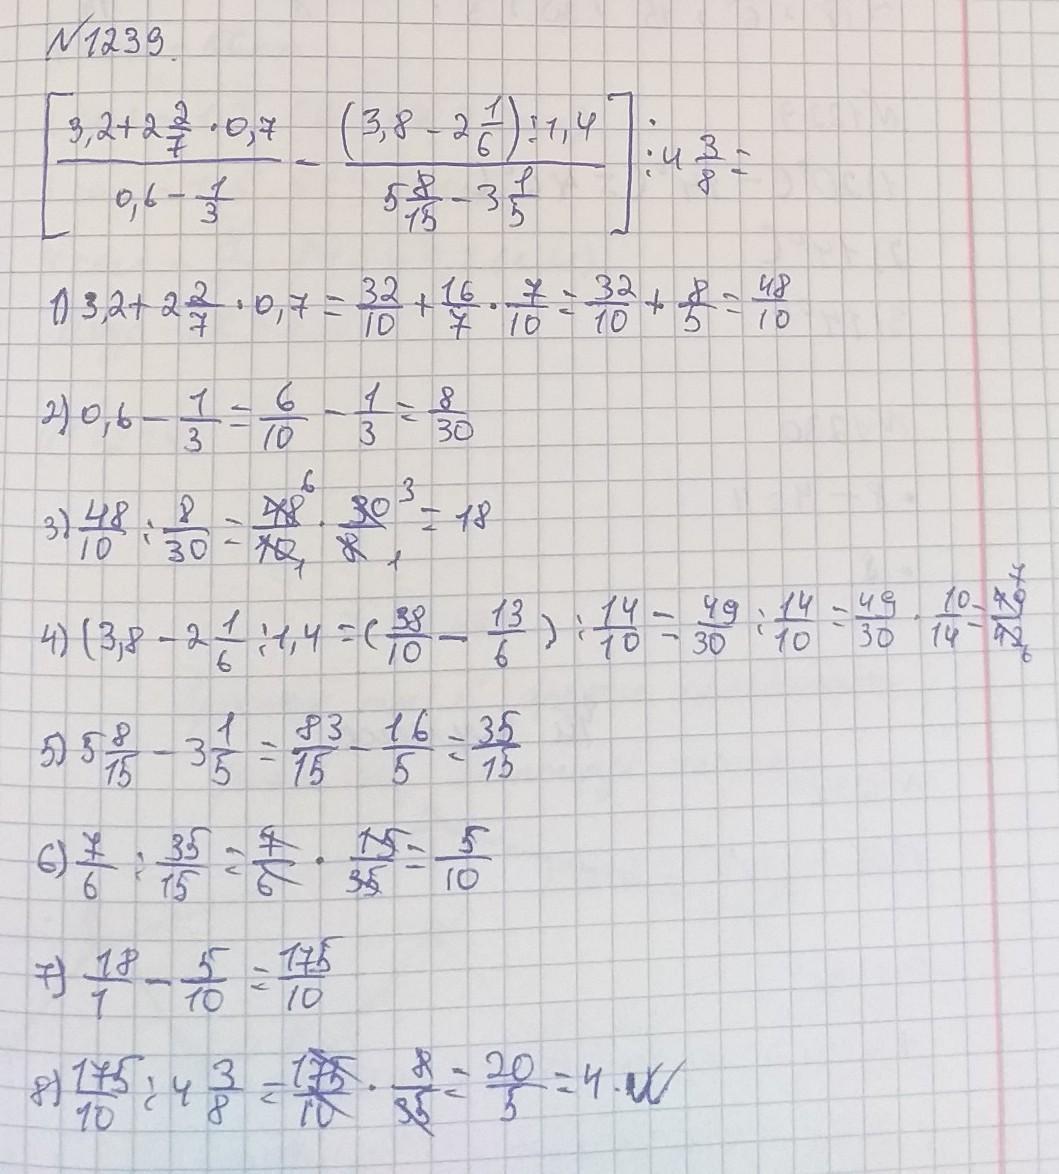 N1239.
[(3,2+2 2/7 · 0,7)/(0,6 - 1/3) - ((3,8 - 2 1/6) : 1,4)/(5 8/15 - 3 1/5)] : 4 3/8 =
1) 3,2+2 2/7 · 0,7 = 32/10 + 16/7 · 7/10 = 32/10 + 8/5 = 48/10
2) 0,6 - 1/3 = 6/10 - 1/3 = 8/30
3) 48/10 : 8/30 = 48 6/10 1 · 30 3/8 1 = 18
4) (3,8 - 2 1/6 : 1,4 = (38/10 - 13/6) : 14/10 = 49/30 : 14/10 = 49/30 · 10/14 = 49 7/42 6
5) 5 8/15 - 3 1/5 = 83/15 - 16/5 = 35/15
6) 7/6 : 35/15 = 7/6 · 15/35 = 5/10
7) 18/1 - 5/10 = 175/10
8) 175/10 : 4 3/8 = 175/10 · 8/35 = 20/5 = 4.